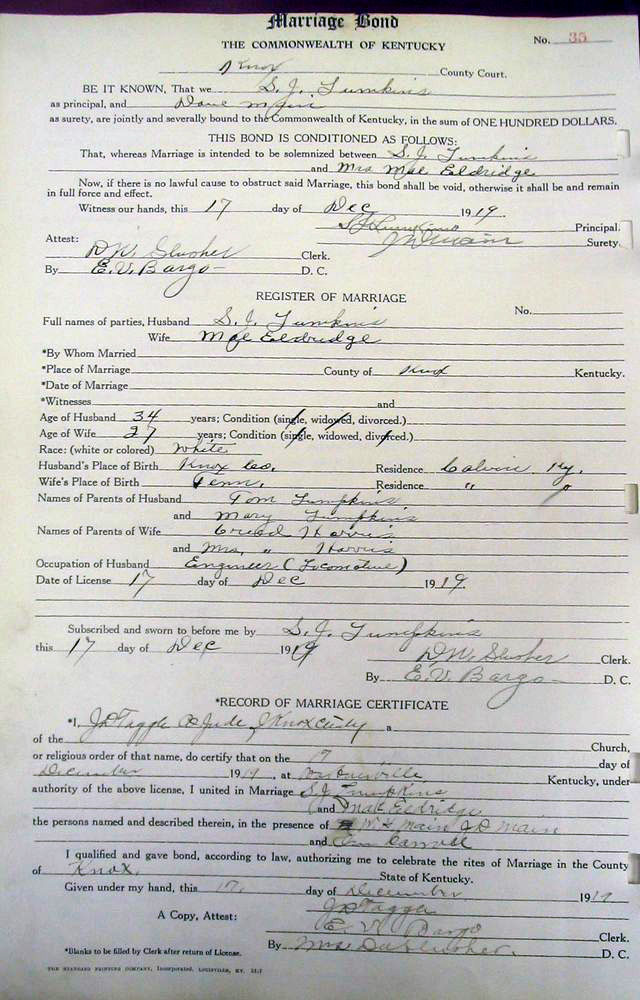 Marriage Bond
No. 35
THE COMMONWEALTH OF KENTUCKY
Knox County Court.
BE IT KNOWN, That we S. J. Lumpkins
as principal, and Dave
as surety, are jointly and severally bound to the Commonwealth of Kentucky, in the sum of ONE HUNDRED DOLLARS.
THIS BOND IS CONDITIONED AS FOLLOWS:
That, whereas Marriage is intended to be solemnized between S. J. Lumpkins
and Mrs Mae Eldridge
Now, if there is no lawful cause to obstruct said Marriage, this bond shall be void, otherwise it shall be and remain
in full force and effect.
Witness our hands, this 17 day of Dec 1919.
S J Lumpkins Principal.
Attest: Surety.
D. W. Slusher Clerk.
By E. V. Bargo D. C.
REGISTER OF MARRIAGE
No.
Full names of parties, Husband S. J. Lumpkins
Wife Mae Eldridge
*By Whom Married
*Place of Marriage County of Knox Kentucky.
*Date of Marriage
*Witnesses and
Age of Husband 34 years; Condition (single, widowed, divorced.)
Age of Wife 27 years; Condition (single, widowed, divorced.)
Race: (white or colored) White
Husband's Place of Birth Knox Co. Residence Calvin Ky.
Wife's Place of Birth Tenn. Residence " "
Names of Parents of Husband Tom Lumpkins
and Mary Lumpkins
Names of Parents of Wife Creed Harris
and Mrs. " Harris
Occupation of Husband Engineer (Locomotive)
Date of License 17 day of Dec 1919.
Subscribed and sworn to before me by S. J. Lumpkins
this 17 day of Dec 1919
D. W. Slusher Clerk.
By E. V. Bargo D. C.
*RECORD OF MARRIAGE CERTIFICATE
*I, J D Taggle Co Jude of Knox County a
of the Church,
or religious order of that name, do certify that on the 17 day of
December 1919, at Kentucky, under
authority of the above license, I united in Marriage S J Lumpkins
and Mae Eldridge
the persons named and described therein, in the presence of W. H. Main J D Main
and
I qualified and gave bond, according to law, authorizing me to celebrate the rites of Marriage in the County
of Knox. State of Kentucky.
Given under my hand, this 17. day of December 1919
J D Taggle
A Copy, Attest: E. V. Bargo Clerk.
By Mrs D W Slusher. D. C.
*Blanks to be filled by Clerk after return of License.
THE STANDARD PRINTING COMPANY, Incorporated, LOUISVILLE, KY.